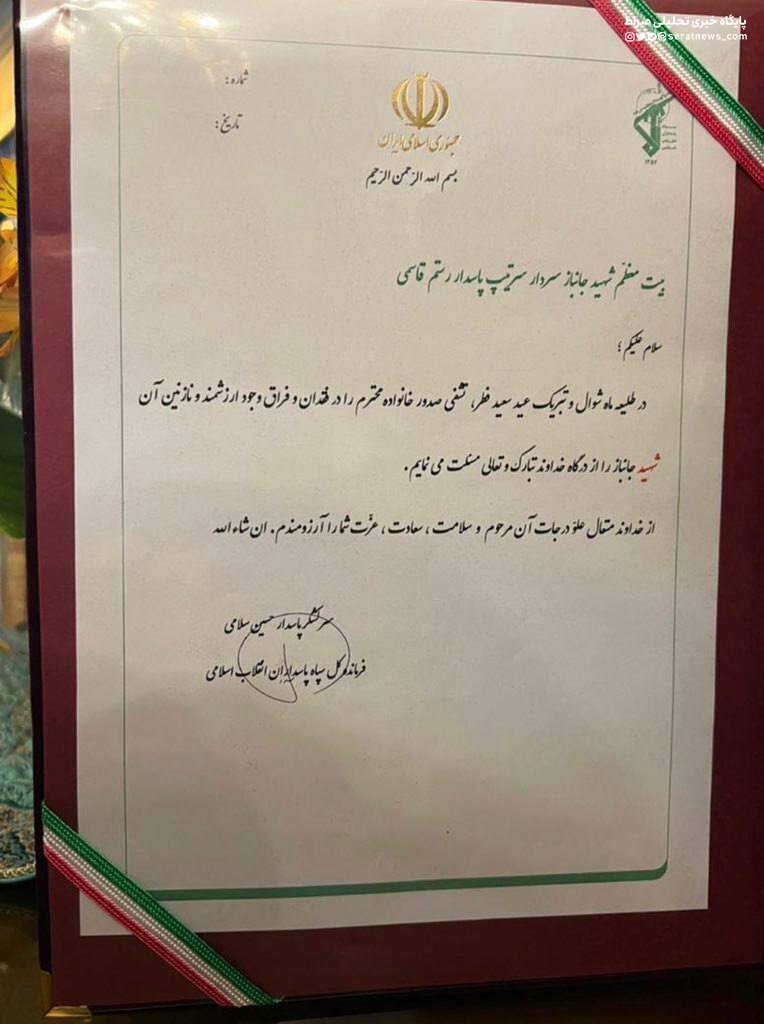 پایگاه خبری تحلیلی صراط
seratnews_com
شماره:
تاریخ:
جمهوری اسلامی ایران
بسم الله الرحمن الرحیم
سپاه
پاسداران
انقلاب
اسلامی
۱۳۵۷
بیت معظّم شهید جانباز سردار سرتیپ پاسدار رستم قاسمی
سلام علیکم؛
در طلیعه ماه شوال و تبریک عید سعید فطر، تشفی صدور خانواده محترم را در فقدان و فراق وجود ارزشمند و نازنین آن
شهید جانباز را از درگاه خداوند تبارک و تعالی مسئلت می نمایم.
از خداوند متعال علوّ درجات آن مرحوم و سلامت، سعادت، عزّت شما را آرزومندم. ان شاء الله
سرلشکر پاسدار حسین سلامی
فرمانده کل سپاه پاسداران انقلاب اسلامی